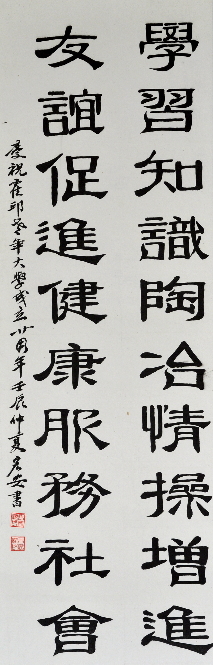 學習知識陶冶情操增進
友誼促進健康服務社會
慶祝霍邱老年大學成立廿周年壬辰仲夏宏安書